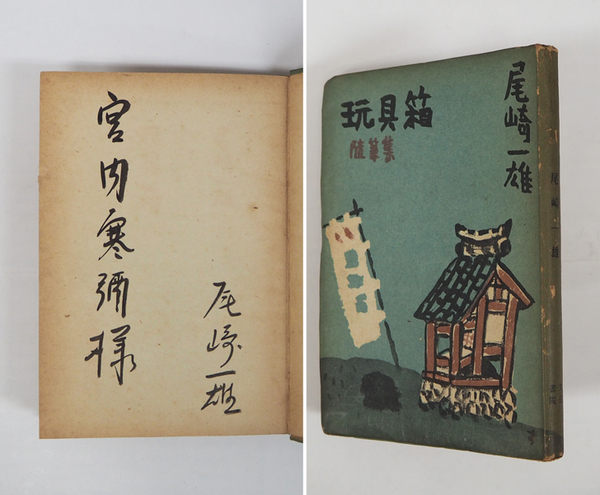 宮内寒彌様
尾崎一雄
玩具箱
随筆集
尾崎一雄
尾崎一雄